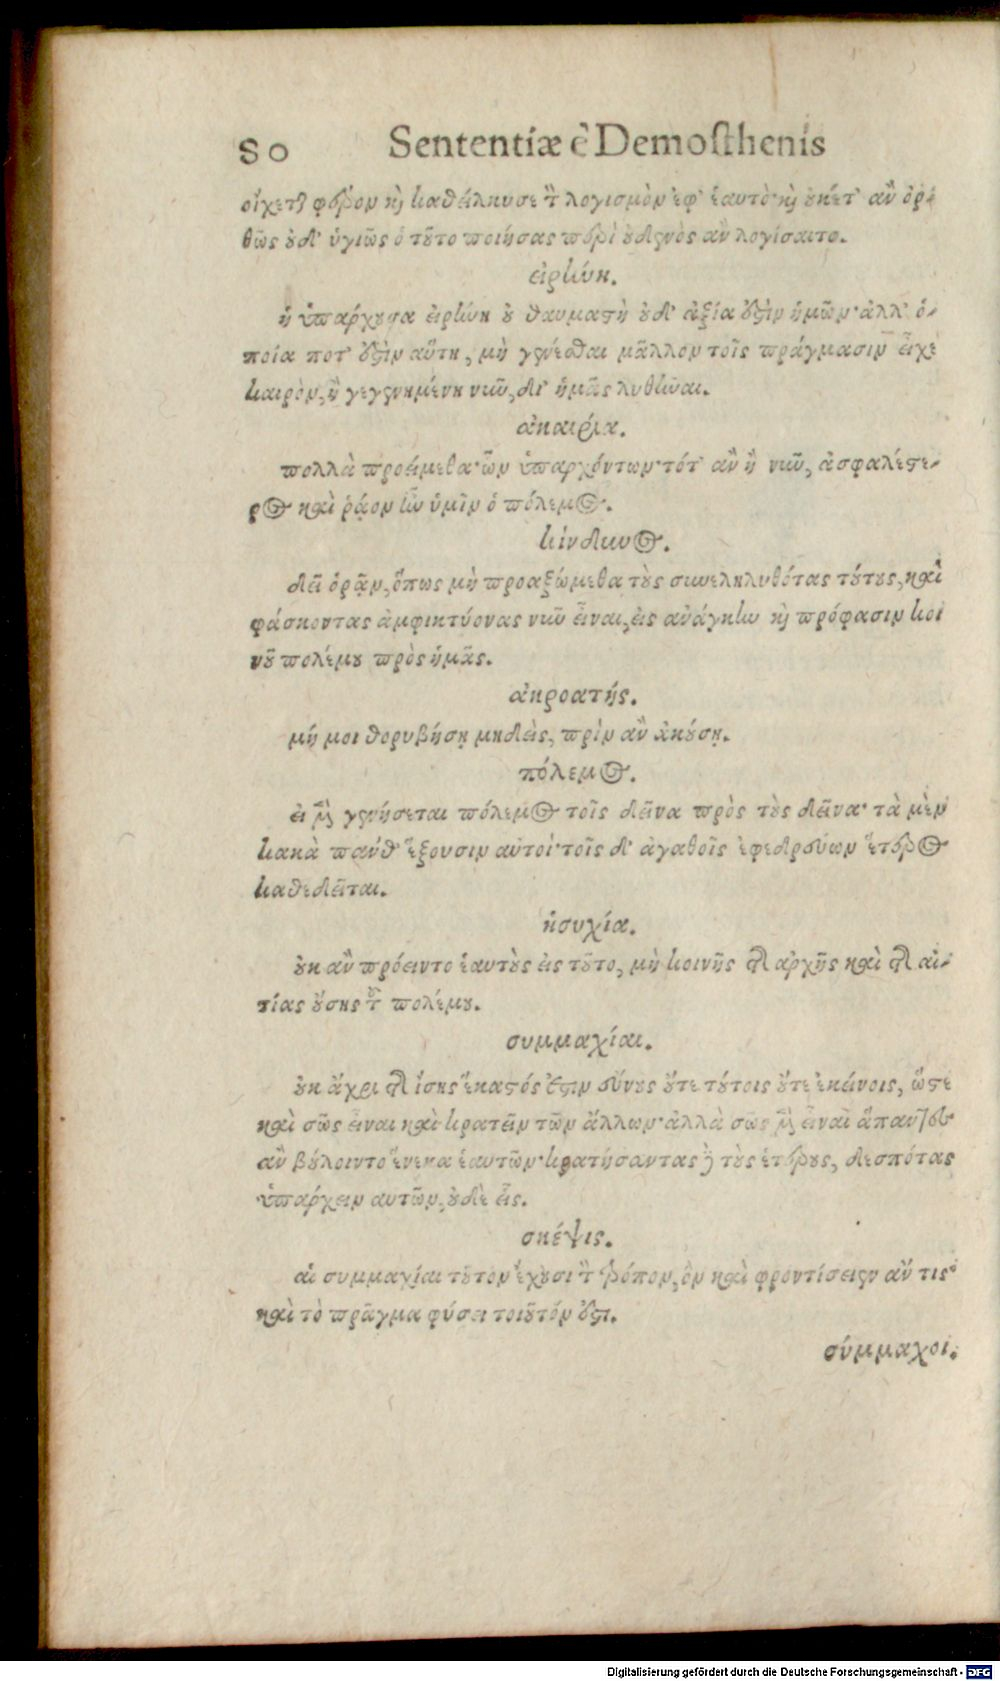 80 Sententiæ è Demosthenis
οἴχεται φέρον καὶ καθείλκυσε τὸν λογισμὸν ἐφ' ἑαυτὸ· καὶ οὐκέτ' ἂν ὀρ-
θῶς οὐδ' ὑγιῶς ὁ τοῦτο ποιήσας περὶ οὐδενὸς ἂν λογίσαιτο.
εἰρήνη.
ἡ ὑπάρχουσα εἰρήνη οὐ θαυμαστὴ οὐδ' ἀξία ἐστὶν ἡμῶν· ἀλλ' ὁ-
ποία ποτ' ἐστὶν αὕτη, μὴ γενέσθαι μᾶλλον τοῖς πράγμασιν εἶχε
καιρὸν, ἢ γεγενημένη νῦν, δι' ἡμᾶς λυθῆναι.
ἀκαιρία.
πολλὰ προείμεθα· ὧν ὑπαρχόντων· τότ' ἂν ἢ νῦν, ἀσφαλέστε-
ρος καὶ ῥᾴον ἦν ὑμῖν ὁ πόλεμος.
κίνδυνος.
δεῖ ὁρᾷν, ὅπως μὴ προαξώμεθα τοὺς συνεληλυθότας τούτους, καὶ
φάσκοντας ἀμφικτύονας νῦν εἶναι, εἰς ἀνάγκην καὶ πρόφασιν κοι
νοῦ πολέμου πρὸς ἡμᾶς.
ἀκροατής.
μή μοι θορυβήσῃ μηδεὶς, πρὶν ἂν ἀκούσῃ.
πόλεμος.
εἰ μὲν γενήσεται πόλεμος τοῖς δεῖνα πρὸς τοὺς δεῖνα· τὰ μὲν
κακὰ πανθ' ἕξουσιν αὐτοί· τοῖς δ' ἀγαθοῖς ἐφεδρεύων ἕτερος
καθεδεῖται.
ἡσυχία.
οὐκ ἂν πρόειντο ἑαυτοὺς εἰς τοῦτο, μὴ κοινῆς τῆς ἀρχῆς καὶ τῆς αἰ-
τίας οὔσης τοῦ πολέμου.
συμμαχίαι.
οὐκ ἄχρι τῆς ἴσης ἕκαστός ἐστιν εὔνους οὔτε τούτοις οὔτε ἐκείνοις, ὥστε
καὶ σῶς εἶναι καὶ κρατεῖν τῶν ἄλλων· ἀλλὰ σῶς μὲν εἶναι ἅπαντες
ἂν βούλοιντο ἕνεκα ἑαυτῶν· κρατήσαντας δὲ τοὺς ἑτέρους, δεσπότας
ὑπάρχειν αυτῶν, οὐδὲ εἷς.
σκέψις.
αἱ συμμαχίαι τοῦτον ἔχουσι τὸν τρόπον, ὃν καὶ φροντίσειεν ἄν τις·
καὶ τὸ πρᾶγμα φύσει τοιοῦτόν ἐστι.
σύμμαχοι.
Digitalisierung gefördert durch die Deutsche Forschungsgemeinschaft - DFG